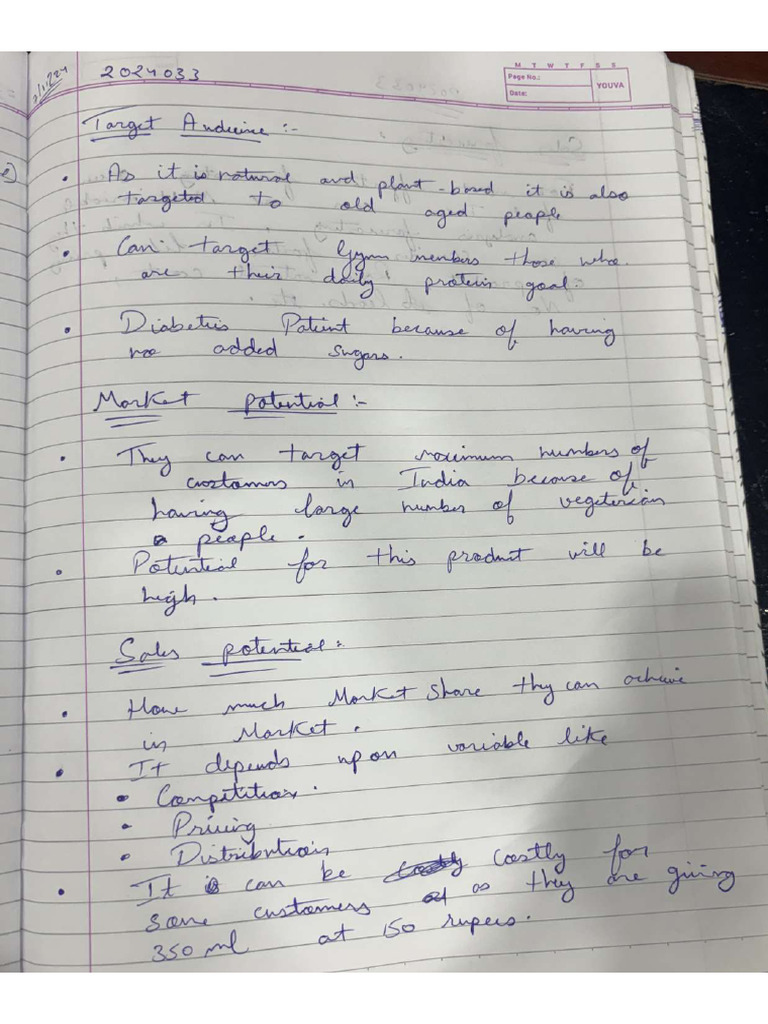 2024033
M T W T F S S
Page No.:
Date:
YOUVA
Target Audience :-
• As it is natural and plant-based it is also
targeted to old aged people
• Can target Gym members those who
are their daily protein goal.
• Diabetis Patient because of having
no added sugars.
Market Potential :-
• They can target maximum numbers of
customers in India because of
having large number of vegeterian
people.
• Potential for this product will be
high.
Sales potential :-
• How much Market share they can acheive
in Market.
• It depends upon variable like
• Competition.
• Pricing
• Distribution
• It can be costly for
some customers as they are giving
350 ml at 150 rupees.